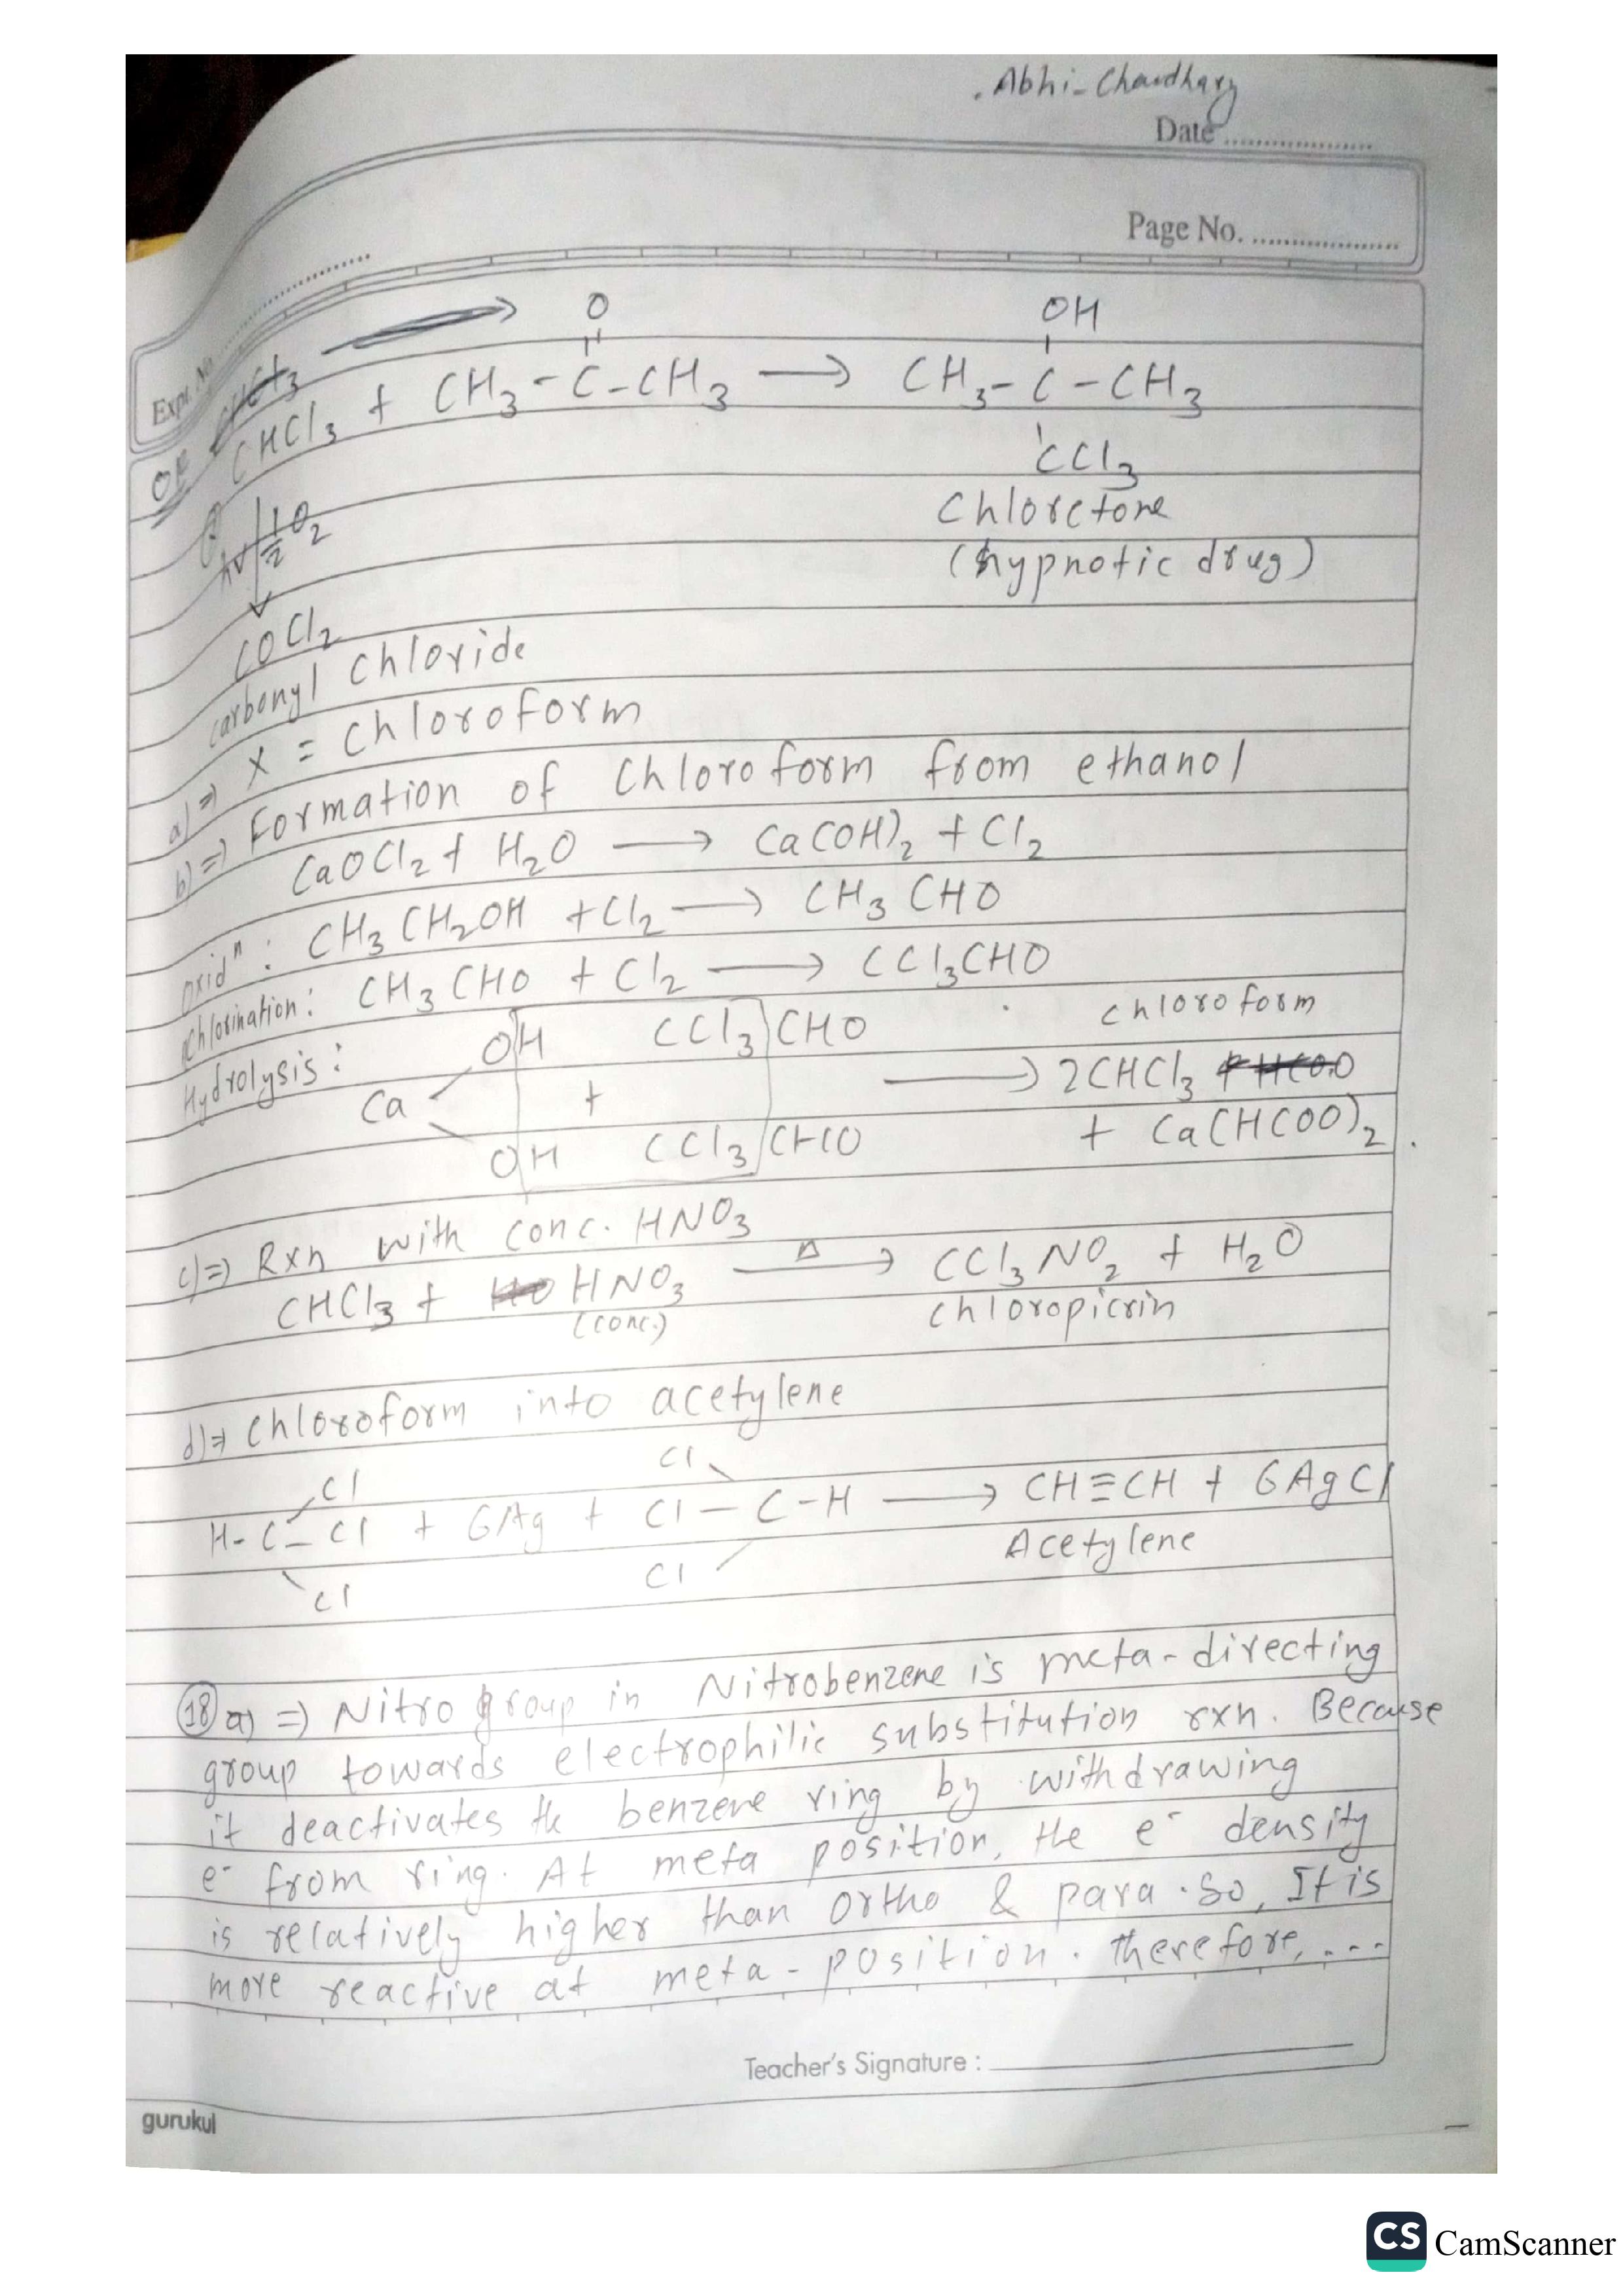 Abhi-Chaudhary
Date
Page No.
Expt. No.
O OH
OR CHCl3 + CH3-C-CH3 → CH3-C-CH3
CCl3
hv 1/2 O2
Chloretone
(hypnotic drug)
COCl2
carbonyl chloride
a) ⇒ X = Chloroform
b) ⇒ Formation of Chloroform from ethanol
CaOCl2 + H2O → Ca(OH)2 + Cl2
oxidn : CH3CH2OH + Cl2 → CH3CHO
Chlorination : CH3CHO + Cl2 → CCl3CHO
Hydrolysis : OH CCl3 CHO chloroform
Ca + → 2CHCl3
OH CCl3 CHO + Ca(HCOO)2
c) ⇒ Rxn with conc. HNO3
CHCl3 + HNO3 Δ → CCl3NO2 + H2O
(conc.) chloropicrin
d) ⇒ Chloroform into acetylene
Cl Cl
H-C-Cl + 6Ag + Cl-C-H → CH≡CH + 6AgCl
Cl Cl Acetylene
18 a) ⇒ Nitro group in Nitrobenzene is meta-directing
group towards electrophilic substitution rxn. Because
it deactivates the benzene ring by withdrawing
e- from ring. At meta position, the e- density
is relatively higher than ortho & para. So, It is
more reactive at meta-position. therefore, ....
Teacher's Signature :
gurukul
CS CamScanner